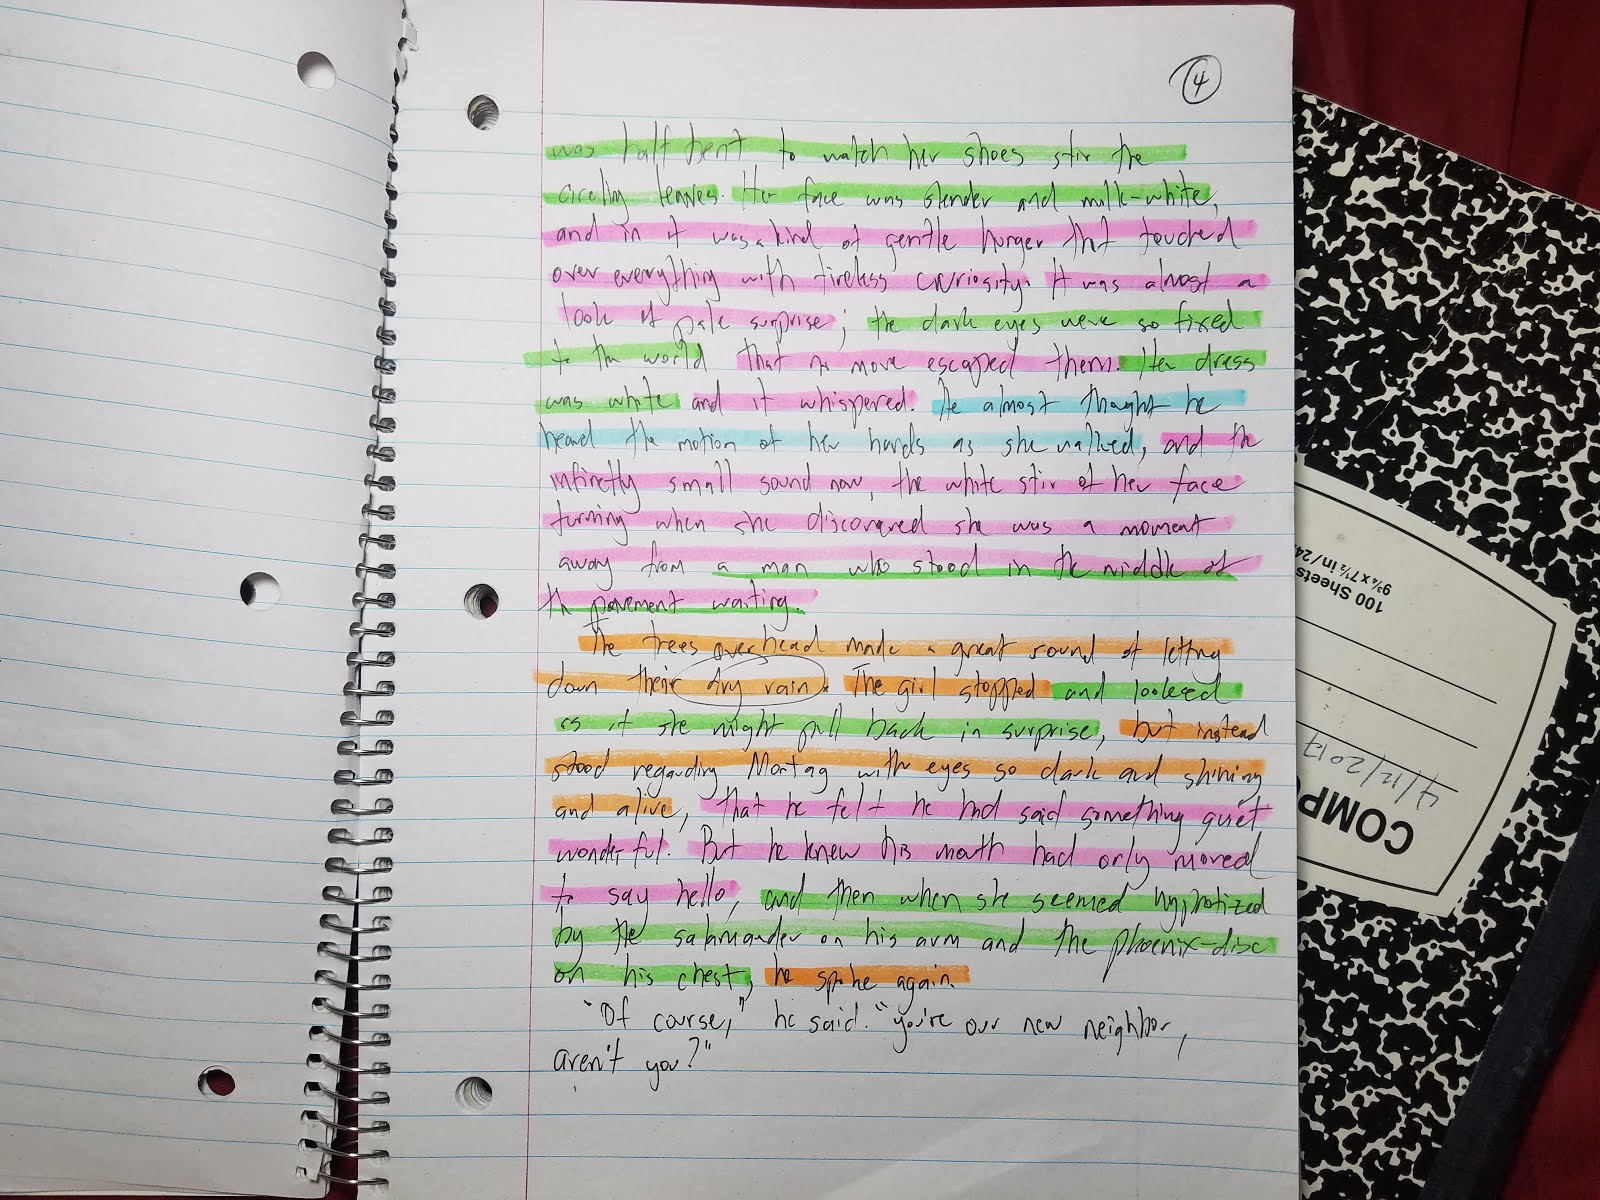 4
was half bent to watch her shoes stir the
circling leaves. Her face was slender and milk-white,
and in it was a kind of gentle hunger tht touched
over everything with tireless curiosity. It was almost a
look of pale surprise; the dark eyes were so fixed
to the world that no move escaped them. Her dress
was white and it whispered. He almost thought he
heard the motion of her hands as she walked, and the
infinetly small sound now, the white stir of her face
turning when she discovered she was a moment
away from a man who stood in the middle of
th pavement waiting.
The trees overhead made a great sound of letting
down their dry rain. The girl stopped and looked
as if she might pull back in surprise, but instead
stood regarding Montag with eyes so dark and shining
and alive, that he felt he had said something quiet
wonderful. But he knew his mouth had only moved
to say hello, and then when she seemed hypnotized
by the salamander on his arm and the phoenix-disc
on his chest, he spoke again.
"Of course," he said. "you're our new neighbor,
aren't you?"
100 Sheets
9¾ x 7½ in/24
4/12/2017
COMP